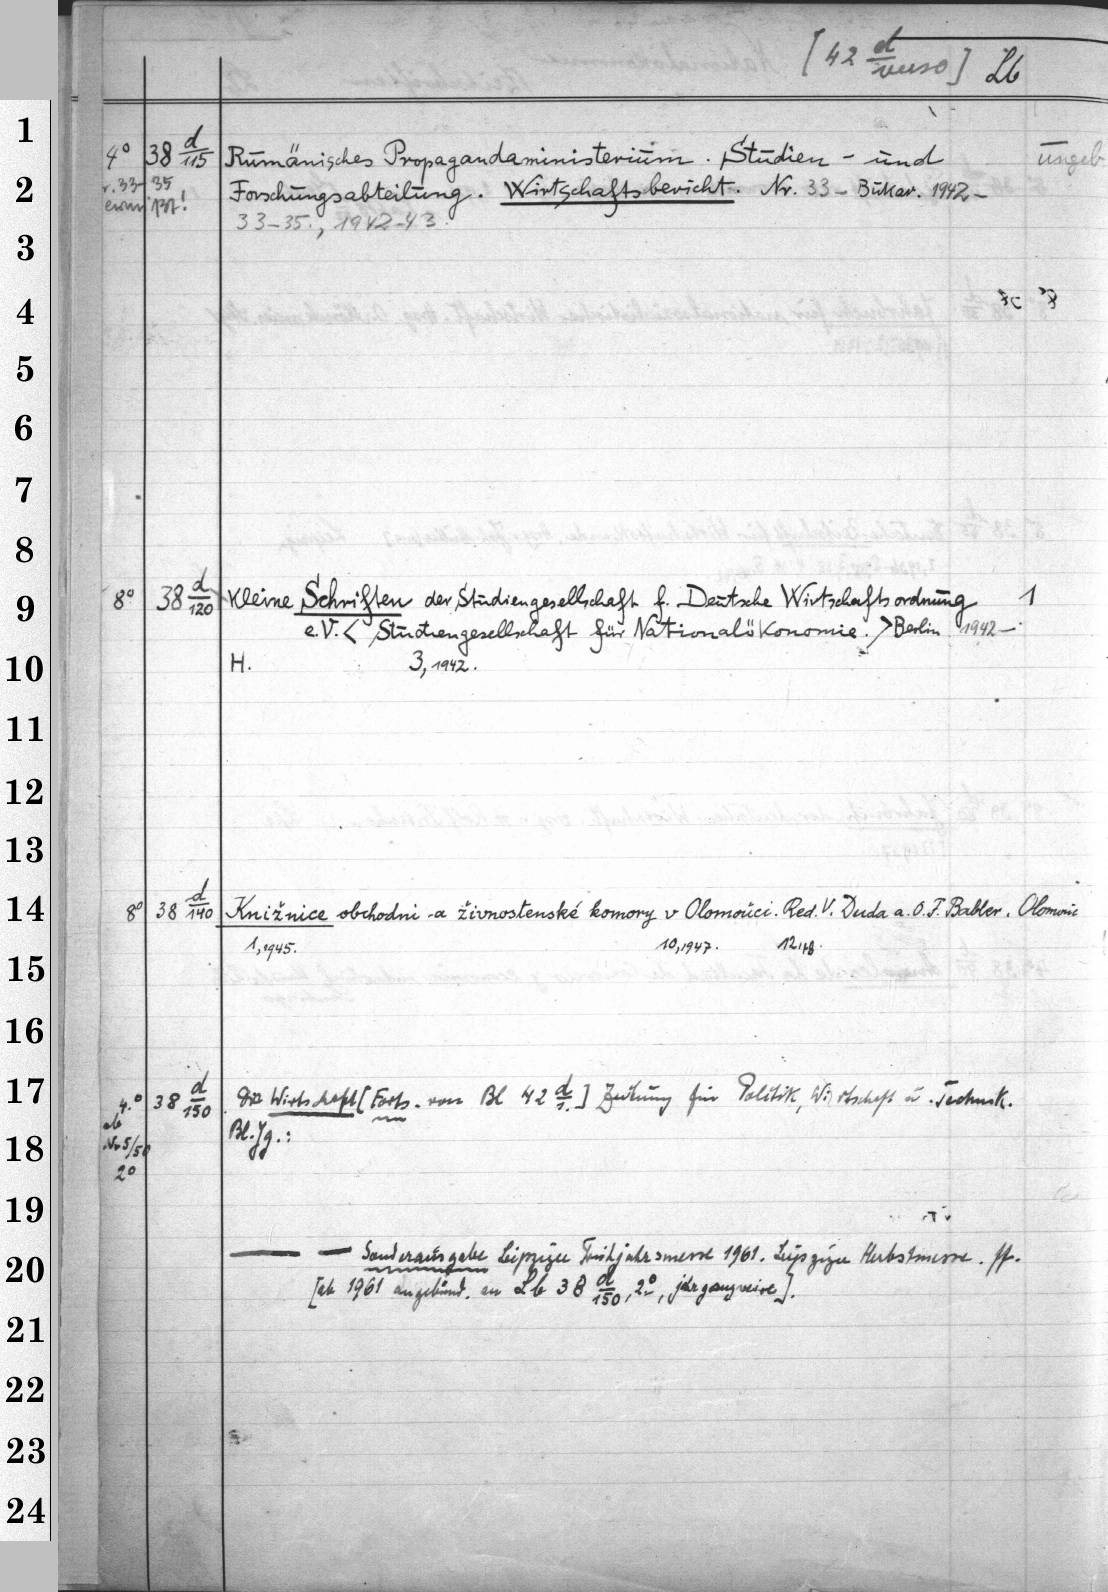 [42 d/verso] Lb
4° 38 d/115 Rumänisches Propagandaministerium. Studien- und ungeb
33-35 Forschungsabteilung. Wirtschaftsbericht. Nr. 33- Bukar. 1942-
33-35., 1942-43.
8° 38 d/120 Kleine Schriften der Studiengesellschaft f. Deutsche Wirtschaftsordnung 1
e.V. < Studiengesellschaft für Nationalökonomie. > Berlin 1942-
H. 3, 1942.
8° 38 d/140 Knižnice obchodni a živnostenské komory v Olomouci. Red. V. Duda a. O. F. Babler. Olomouc
1, 1945. 10, 1947. 12, 48.
4.° 38 d/150 Die Wirtschaft [Forts. von Bl 42 d/1.] Zeitung für Politik, Wirtschaft u. Technik.
ab
Nr 5/50 Bl. Jg.:
2°
— — Sonderausgabe Leipziger Frühjahrsmesse 1961. Leipziger Herbstmesse. ff.
[ab 1961 angebund. an Lb 38 d/150, 2°, jahrgangweise].
1
2
3
4
5
6
7
8
9
10
11
12
13
14
15
16
17
18
19
20
21
22
23
24